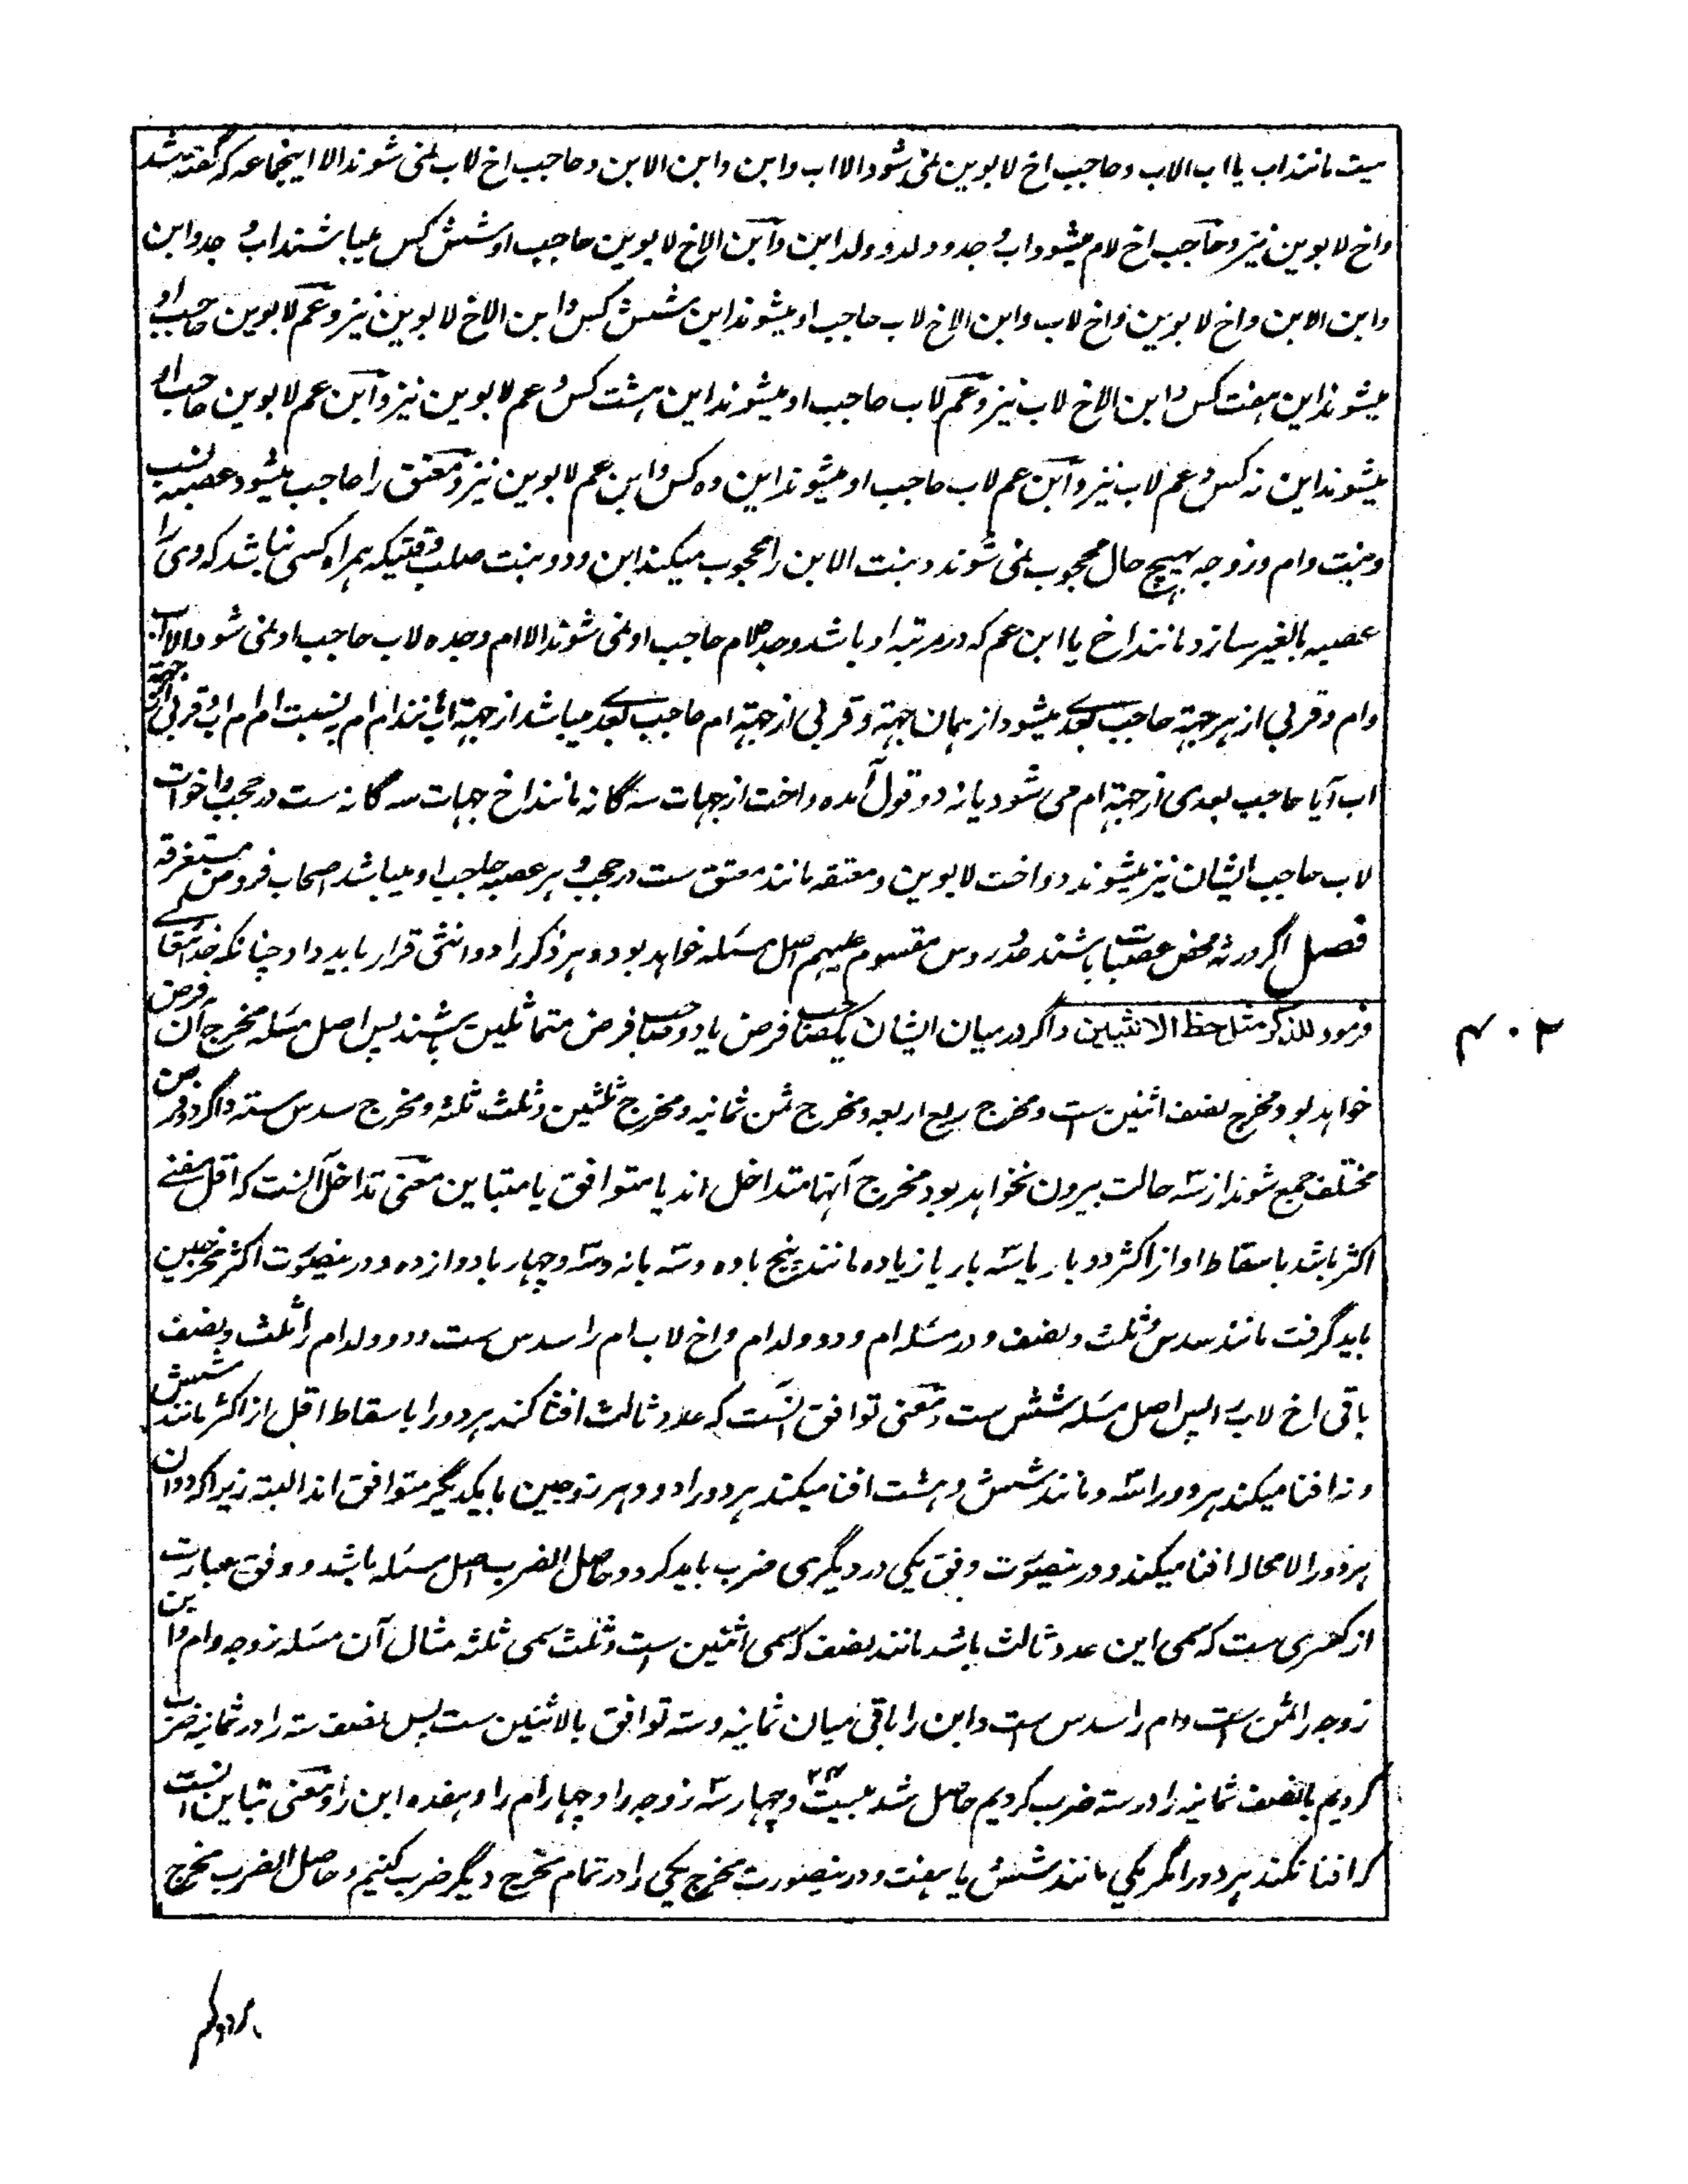 میت مانند اب یا اب الاب و حاجب اخ لابوین نمی شود الا اب و ابن و ابن الابن و حاجب اخ لاب نمی شوند الا اینجماعه که گفته شد
و اخ لابوین نیز و حاجب اخ لام میشود اب و جد و ولد و ولد ابن و ابن الاخ لابوین حاجب او شش کس میباشند اب و جد و ابن
و ابن الابن و اخ لابوین و اخ لاب و ابن الاخ لاب حاجب او میشوند این شش کس و ابن الاخ لابوین نیز و عم لابوین حاجب او
میشوند این هفت کس و ابن الاخ لاب نیز و عم لاب حاجب او میشوند این هشت کس و عم لابوین نیز و ابن عم لابوین حاجب او
میشوند این نه کس و عم لاب نیز و ابن عم لاب حاجب او میشوند این ده کس و ابن عم لابوین نیز و معتق را حاجب میشود عصبه نسب
و بنت و ام و زوجه بهیچ حال محجوب نمی شوند و بنت الابن را محجوب میکند ابن و دو بنت صلب وقتیکه همراه کسی نباشد که وی را
عصبه بالغیر سازد مانند اخ یا ابن عم که در مرتبه او باشد و جده لام حاجب او نمی شوند الا ام و جده لاب حاجب او نمی شود الا اب
و ام و قربی از هر جهة حاجب بعدی میشود از همان جهة و قربی از جهة ام حاجب بعدی میباشد از جهة اب مانند ام ام بنسبت ام ام اب و قربی از جهة
اب آیا حاجب بعدی از جهة ام می شود یا نه دو قول آمده و اخت از جهات سه گانه مانند اخ جهات سه گانه ست در حجب و اخوات
لاب حاجب ایشان نیز میشوند دو اخت لابوین و معتقه مانند معتق ست در حجب و هر عصبه حاجب او میباشد اصحاب فروض مستغرقه
فصل اگر ورثه محض عصبات باشند عدد روس مقسوم علیهم اصل مسئله خواهد بود و هر ذکر را دو انثی قرار باید داد چنانکه خدایتعالی
فرمود للذکر مثل حظ الانثیین و اگر در میان ایشان یک صاحب فرض یا دو صاحب فرض متماثلین باشند پس اصل مسئله مخرج آن فرض
خواهد بود و مخرج نصف اثنین ست و مخرج ربع اربعه و مخرج ثمن ثمانیه و مخرج ثلثین و ثلث ثلثه و مخرج سدس سته و اگر دو فرض
مختلف جمع شوند از سه حالت بیرون نخواهد بود مخرج آنها متداخل اند یا متوافق یا متباین معنی تداخل آنست که اقل مفنی
اکثر باشد با سقاط او از اکثر دو بار یا سه بار یا زیاده مانند پنج با ده و سه با نه و سه و چهار با دوازده و در ینصورت اکثر مخرجین
باید گرفت مانند سدس و ثلث و نصف و در مسئله ام و دو ولد ام و اخ لاب ام را سدس ست و دو ولد ام را ثلث و نصف
باقی اخ لاب را پس اصل مسئله شش ست و معنی توافق آنست که عدد ثالث افنا کند هر دو را با سقاط اقل از اکثر مانند شش
و نه افنا میکند هر دو را سه و مانند شش و هشت افنا میکند هر دو را دو و هر زوجین با یکدیگر متوافق اند البته زیرا که دو آن
هر دو را لا محاله افنا میکند و در ینصورت وفق یکی در دیگری ضرب باید کرد و حاصل الضرب اصل مسئله باشد و وفق عبارت
از کسری ست که سمی این عدد ثالث باشد مانند نصف که سمی اثنین ست و ثلث سمی ثلثه مثال آن مسئله زوجه و ام و ابن
زوجه را ثمن ست و ام را سدس ست و ابن را باقی میان ثمانیه و سته توافق بالاثنین ست پس نصف سته را در ثمانیه ضرب
کردیم یا نصف ثمانیه را در سته ضرب کردیم حاصل شد بیست ۲۴ و چهار سه زوجه را و چهار ام را و هفده ابن را و معنی تباین آنست
که افنا نکند هر دو را مگر یکی مانند شش یا هفت و در ینصورت مخرج یکی را در تمام مخرج دیگر ضرب کنیم و حاصل الضرب مخرج
۴۰۲